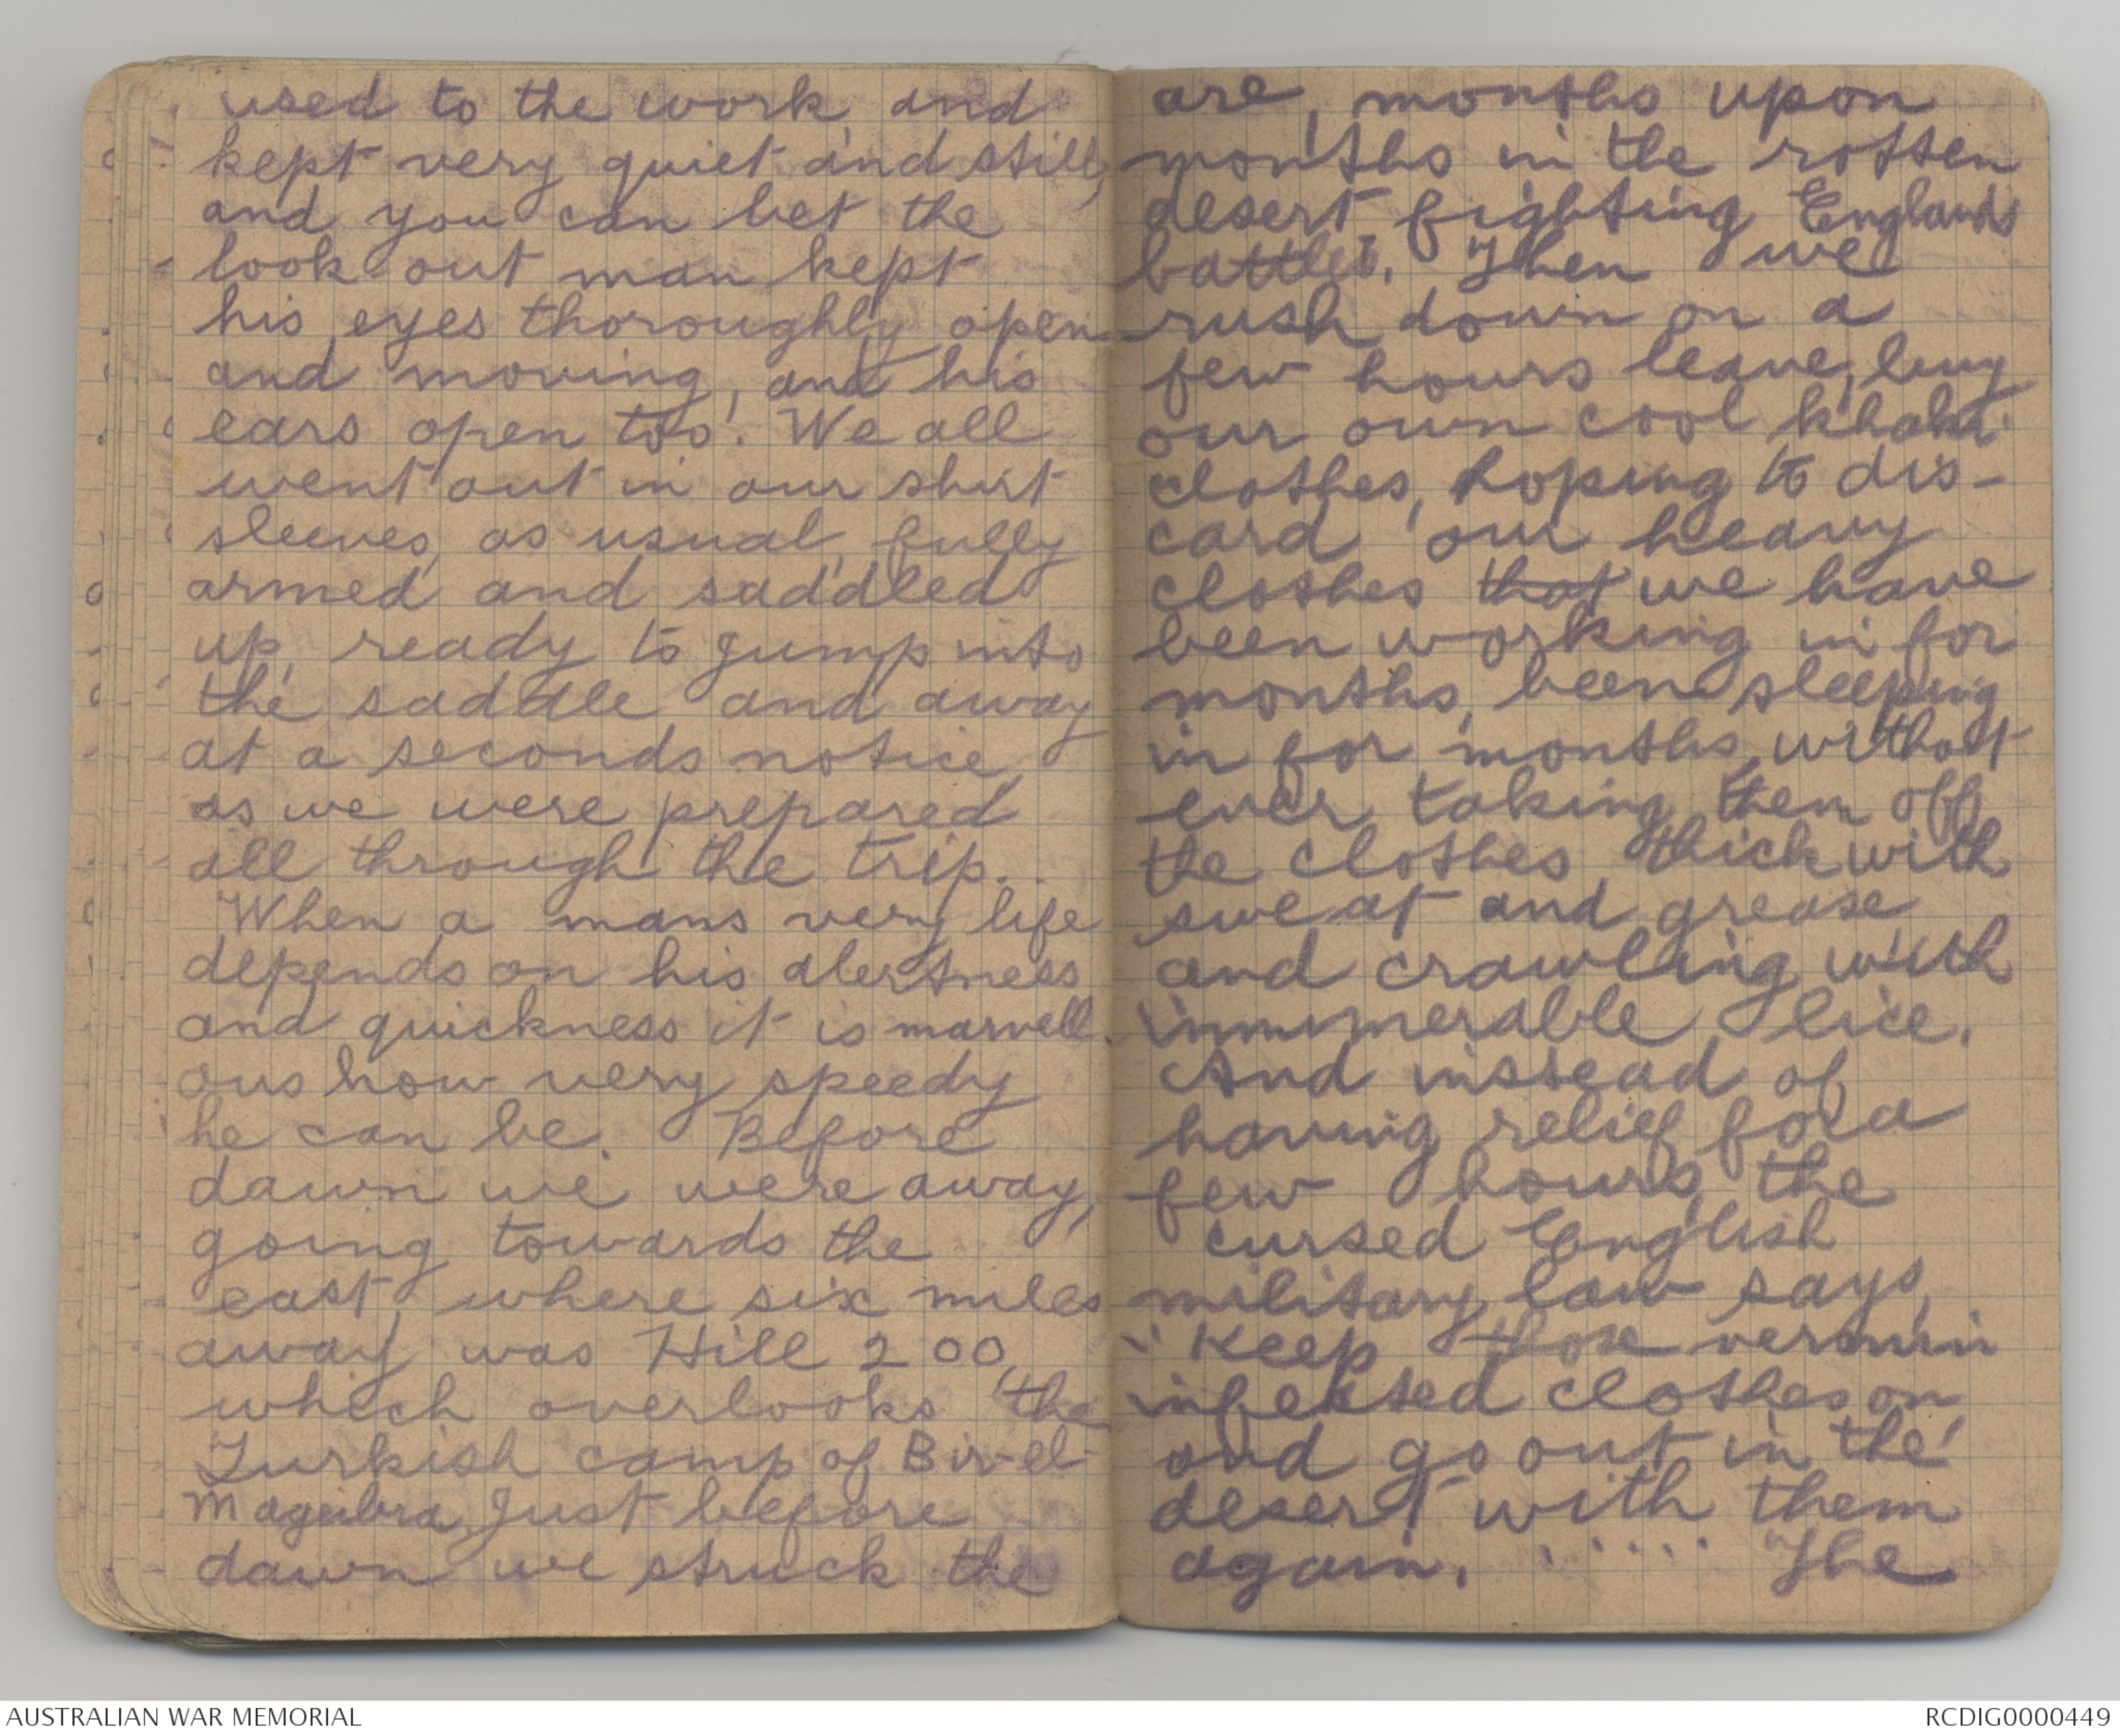 used to the work, and
kept very quiet and still,
and you can bet the
look out man kept
his eyes thoroughly open
and moving, and his
ears open too! We all
went out in our shirt
sleeves, as usual, fully
armed and saddled
up, ready to jump into
the saddle and away
at a seconds notice,
as we were prepared
all through the trip..
When a mans very life
depends on his alertness
and quickness it is marvell-
ous how very speedy
he can be. Before
dawn we were away,
going towards the
east, where six miles
away was Hill 200,
which overlooks the
Turkish camp of Bir-el-
Mageibra. Just before
dawn we struck the
are, months upon
months in the rotten
desert fighting Englands
battles. Then we
rush down on a
few hours leave, buy
our own cool khaki
clothes, hoping to dis-
card our heavy
clothes that we have
been working in for
months, been sleeping
in for months, without
ever taking them off,
the clothes thick with
sweat and grease,
and crawling with
innumerable lice.
And instead of
having relief for a
few hours, the
cursed English
military law says,
"Keep those vermin
infested clothes on,
and go out in the
desert with them
again. ..... The
AUSTRALIAN WAR MEMORIAL
RCDIG0000449